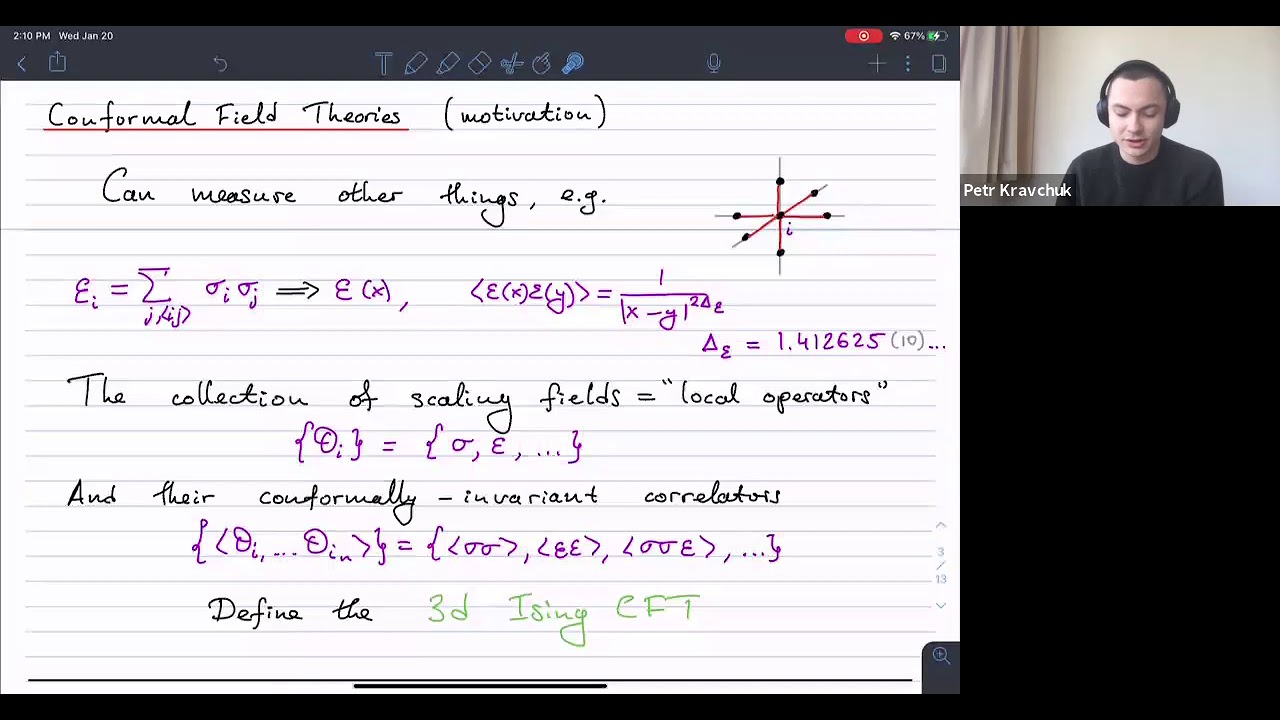 2:10 PM Wed Jan 20
67%
Conformal Field Theories (motivation)
Can measure other things, e.g.
i
ε_i = Σ_{j,⟨ij⟩} σ_i σ_j ⟹ ε(x), ⟨ε(x)ε(y)⟩ = 1/|x-y|^{2Δ_ε}
Δ_ε = 1.412625(10)...
The collection of scaling fields = "local operators"
{O_i} = {σ, ε, ...}
And their conformally-invariant correlators
{⟨O_{i_1} ... O_{i_n}⟩} = {⟨σσ⟩, ⟨εε⟩, ⟨σσε⟩, ...}
Define the 3d Ising CFT
3
/
13
Petr Kravchuk